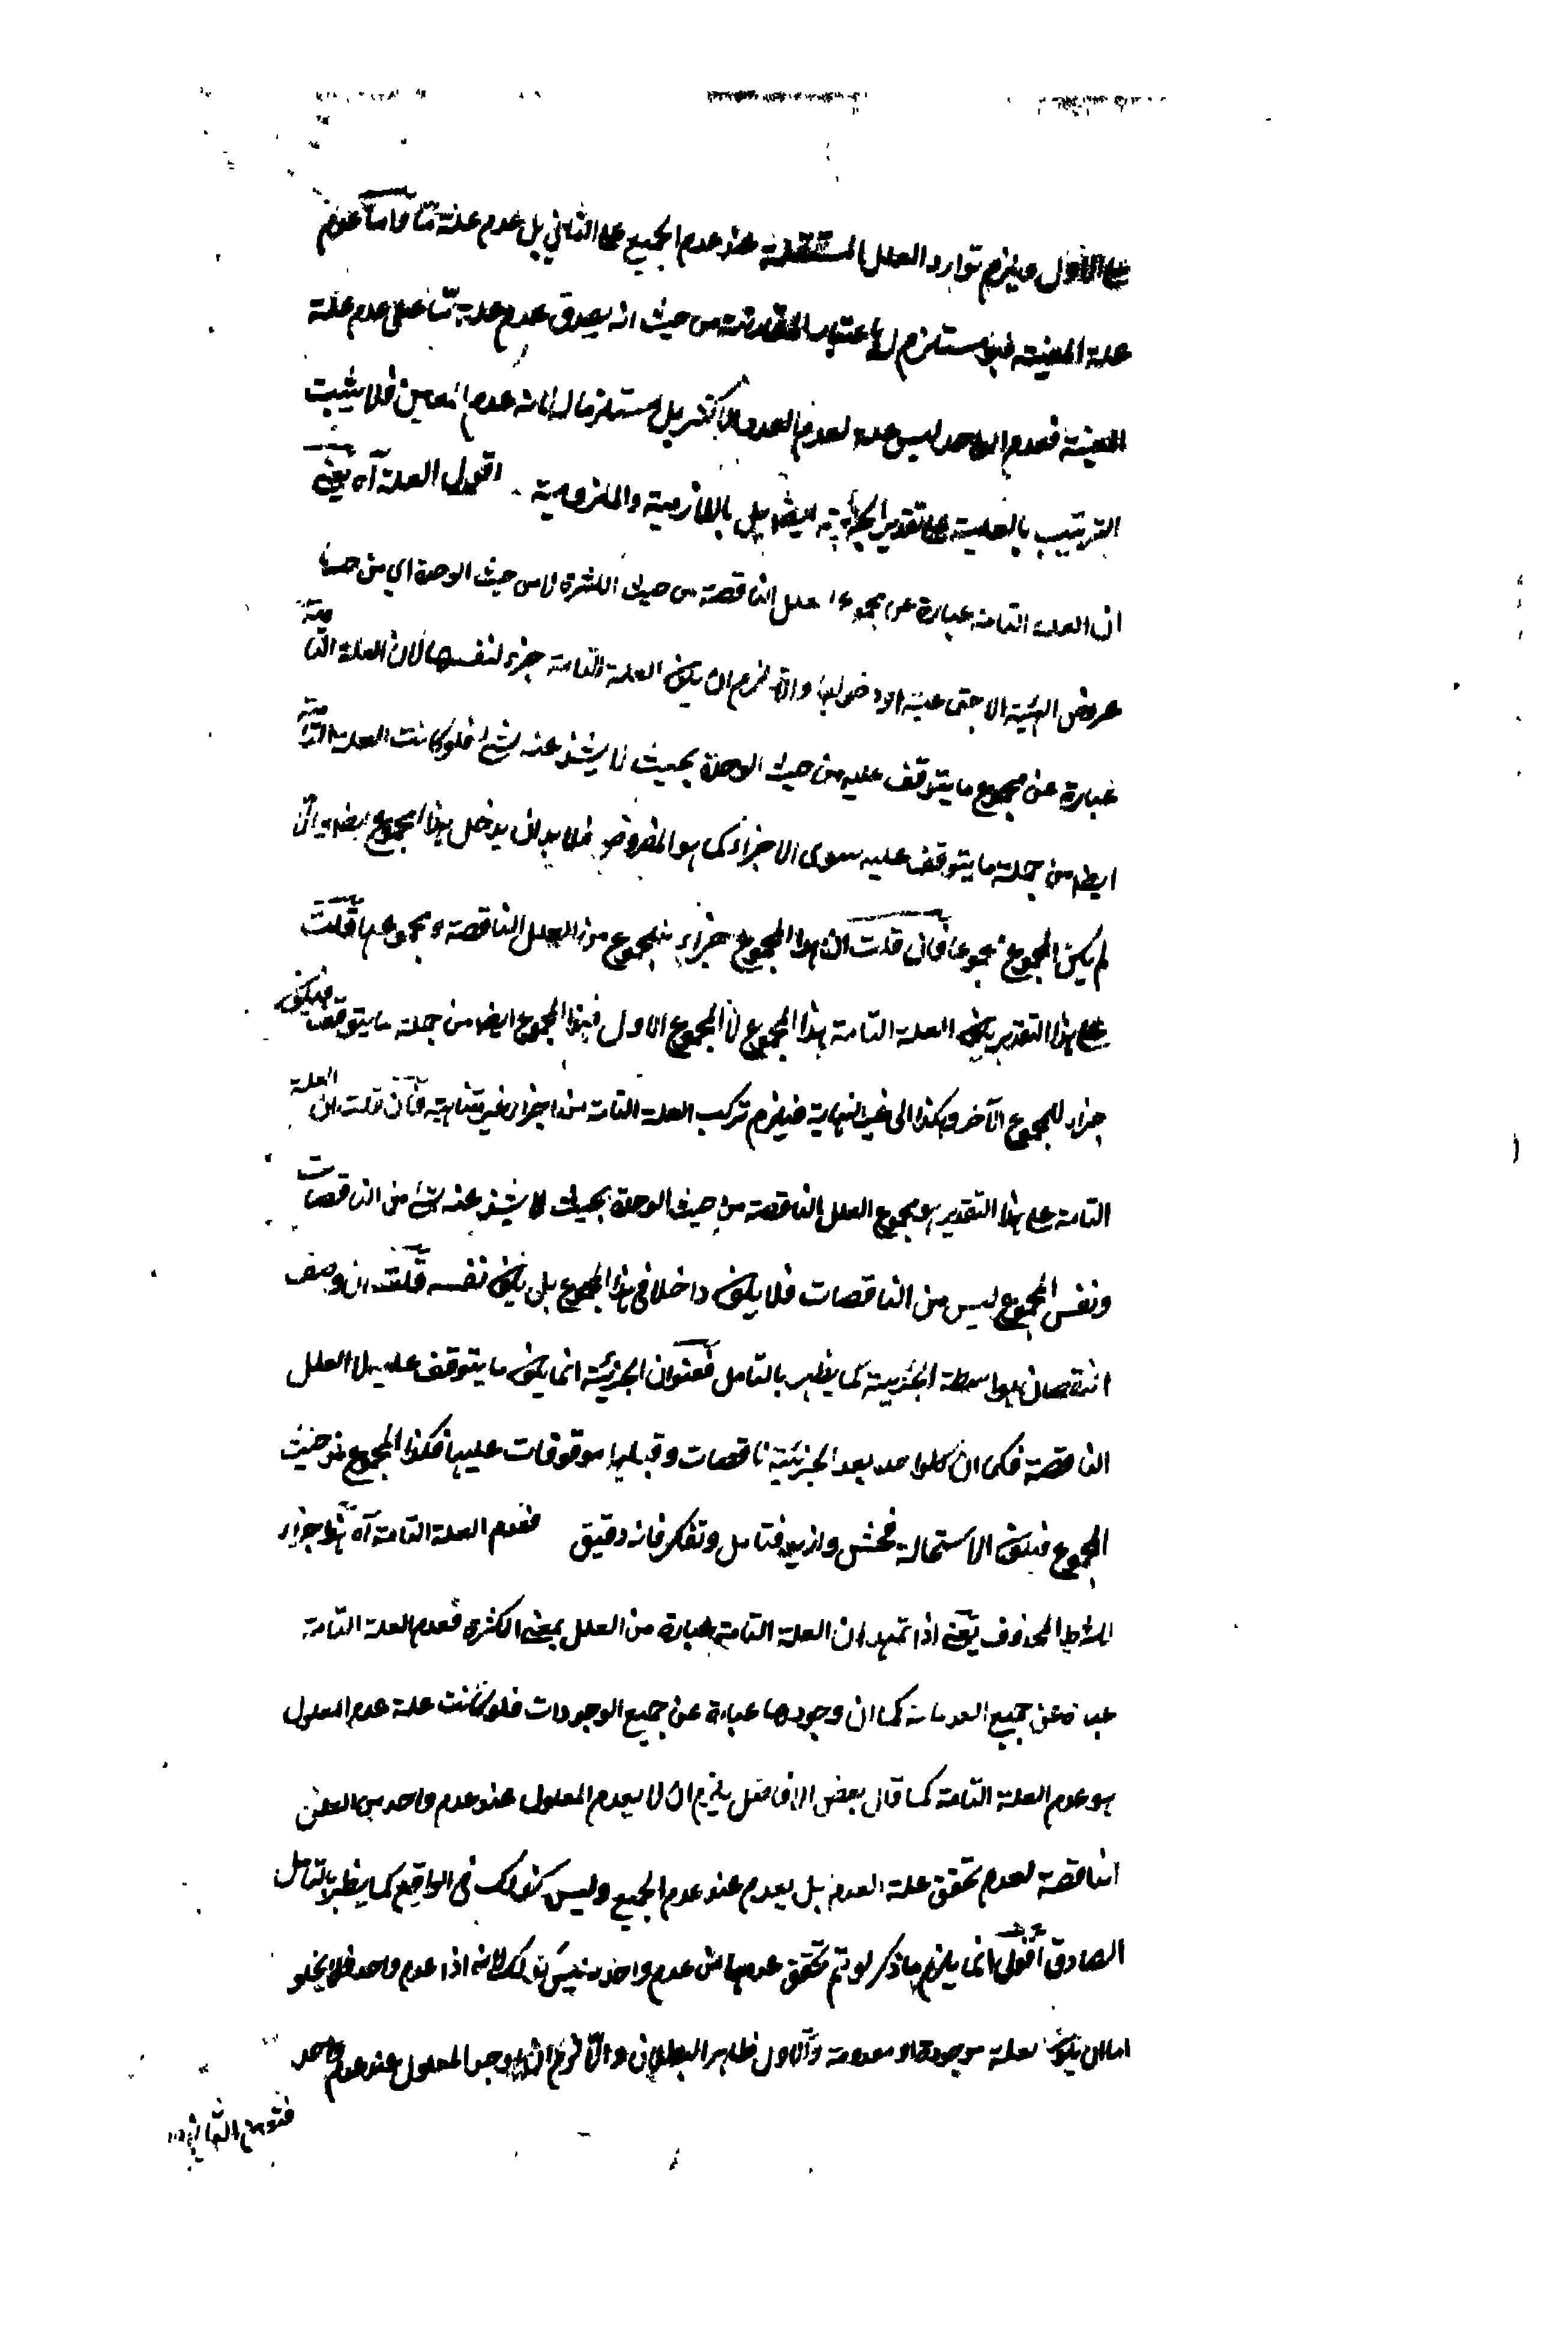 على الاول ويلزم توارد العلل المستقلة عند عدم الجميع على الثاني بل عدم علة ما واما عدم
علة المعينة فهو مستلزم له باعتبار المقارنة من حيث انه يصدق عدم علة ما على عدم علة
المعينة فعدم الواحد ليس علة لعدم العدد الاكثر بل مستلزما له لانه عدم فلا يثبت
الترتيب بالعلية على تقدير الجزئية ايضا بل باللازمية والملزومية اقول العلة آه يعني
ان العلة التامة عبارة عن مجموع العلل الناقصة من حيث الكثرة لا من حيث الوحدة اي من حيث
عروض الهيئة الاجتماعية او دخولها والا لزم ان يكون العلة التامة جزء لنفسها لان العلة التامة
عبارة عن مجموع ما يتوقف عليه من حيث الوحدة بحيث لا يشذ عنه شئ فلو كانت العلة التامة
ايضا من جملة ما يتوقف عليه سوى الاجزاء كما هو المفروض فلا بد ان يدخل هذا المجموع ايضا والا
لم يكن المجموع مجموعا فان قلت ان هذا المجموع جزء لمجموع من العلل الناقصة ومجموعها قلت
على هذا التقدير يكون العلة التامة هذا المجموع لا المجموع الاول فهذا المجموع ايضا من جملة ما يتوقف فيكون
جزء للمجموع الآخر وهكذا الى غير النهاية فيلزم تركب العلة التامة من اجزاء غير متناهية فان قلت ان العلة
التامة على هذا التقدير هو مجموع العلل الناقصة من حيث الوحدة بحيث لا يشذ عنه شئ من الناقصات
ونفس المجموع ليس من الناقصات فلا يكون داخلا في هذا المجموع بل يكون نفسه قلت ان وصف
النقصان بواسطة الجزئية كما يظهر بالتامل فعنوان الجزئية انما يكون ما يتوقف عليه لا العلل
الناقصة فكما ان كلواحد بعد الجزئية ناقصات وقبلها موقوفات عليها فكذا المجموع من حيث
المجموع فيكون الاستحالة فحش وازيد فتامل وتفكر فانه دقيق فعدم العلة التامة آه هذا جزاء
للشرط المحذوف يعني اذا تمهد ان العلة التامة عبارة من العلل بمعنى الكثرة فعدم العلة التامة
عبارة عن جميع العدمات كما ان وجودها عبارة عن جميع الوجودات فلو كانت علة عدم المعلول
هو عدم العلة التامة كما قال بعض الافاضل يلزم ان لا يعدم المعلول عند عدم واحد من العلل
الناقصة لعدم تحقق علة العدم بل يعدم عند عدم الجميع وليس كذلك في الواقع كما يظهر بالتامل
الصادق اقول انما يلزم ما ذكر لو تم تحقق عدمها من عدم واحد وليس كذلك لانه اذا عدم واحد فلا يخلو
اما ان يكون العلة موجودة او معدومة والاول ظاهر البطلان والا لزم ان يوجد المعلول عند عدم واحد
فتعين الثاني